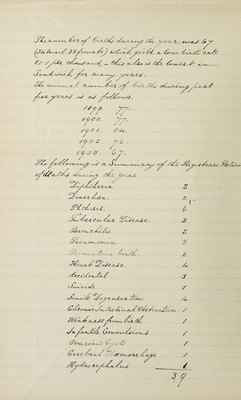 The number of births during the year was 67
(34 male 33 female) which yield a low birth rate
21.1 per thousand – this also is the lowest in
Sandwich for many years.
The annual number of births during past
five years is as follows.
1899. 77.
1900. 77.
1901. 84.
1902. 76.
1903. 67.
The following is a Summary of the Registrars Return
of deaths during the year
Diphtheria 3
Diarrhœa. 2
Phthisis. 6
Tubercular Disease 3
Bronchitis 2
Pneumonia 3
Premature birth 2
Heart Disease 4
Accidental 3
Suicide 1
Senile Degeneration 4
Chronic Intestinal Obstruction 1
Weakness from birth 1
Infantile Convulsions 1
Ovarian Cysts 1
Cerebral Hæmorrhage 1
Hydrocephalus
39